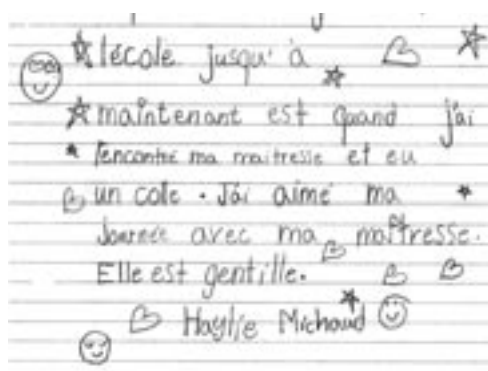 l'école jusqu'à
maintenant est quand j'ai
rencontré ma maitresse et eu
un cole. J'ai aimé ma
Journée avec ma maîtresse.
Elle est gentille.
Haylie Michaud